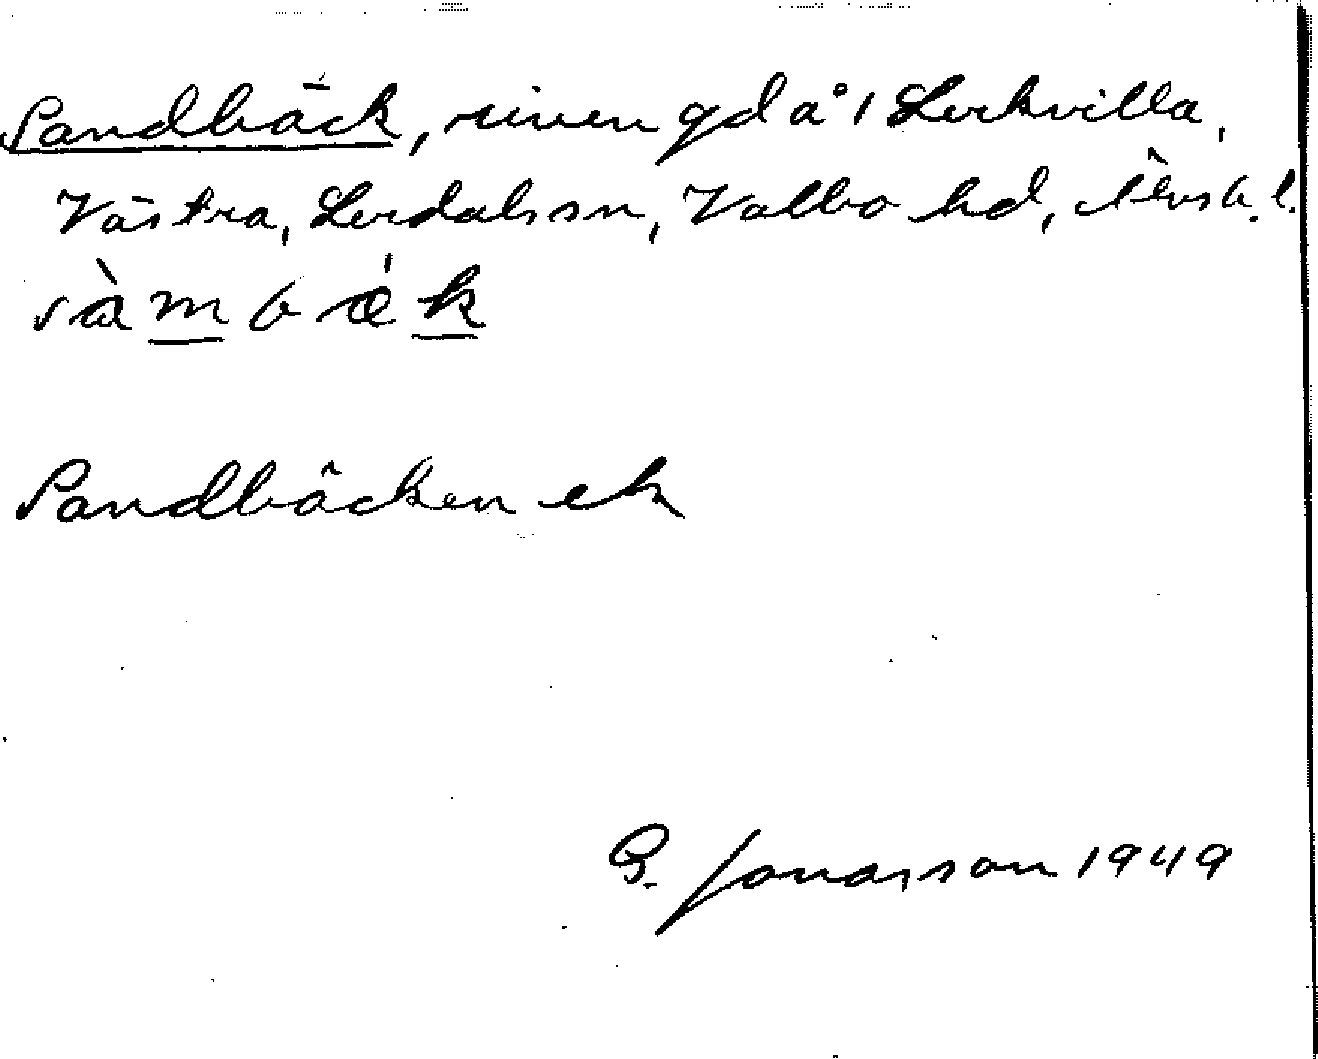 Sandbäck, riven gd å 1 Lerkvilla,
Västra, Lerdals sn, Valbo hd, Älvsb. l.
sàmbǽk
Sandbäcken ek
G. Jonasson 1949